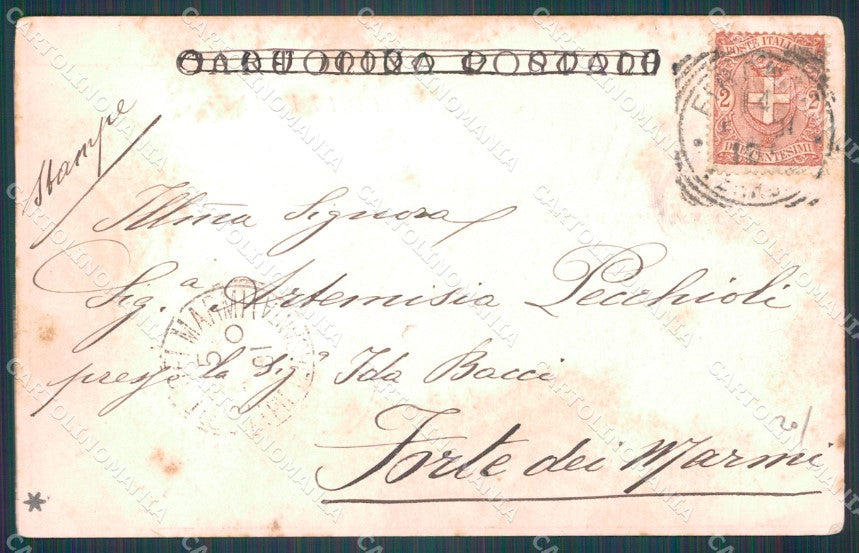 CARTOLINA POSTALE
POSTE ITALIANE
2 2
CENTESIMI
Stampe
Illma Signora
Sig.a Artemisia Pecchioli
presso la Sig.a Ida Bacci
Forte dei Marmi
CARTOLINOMANIA